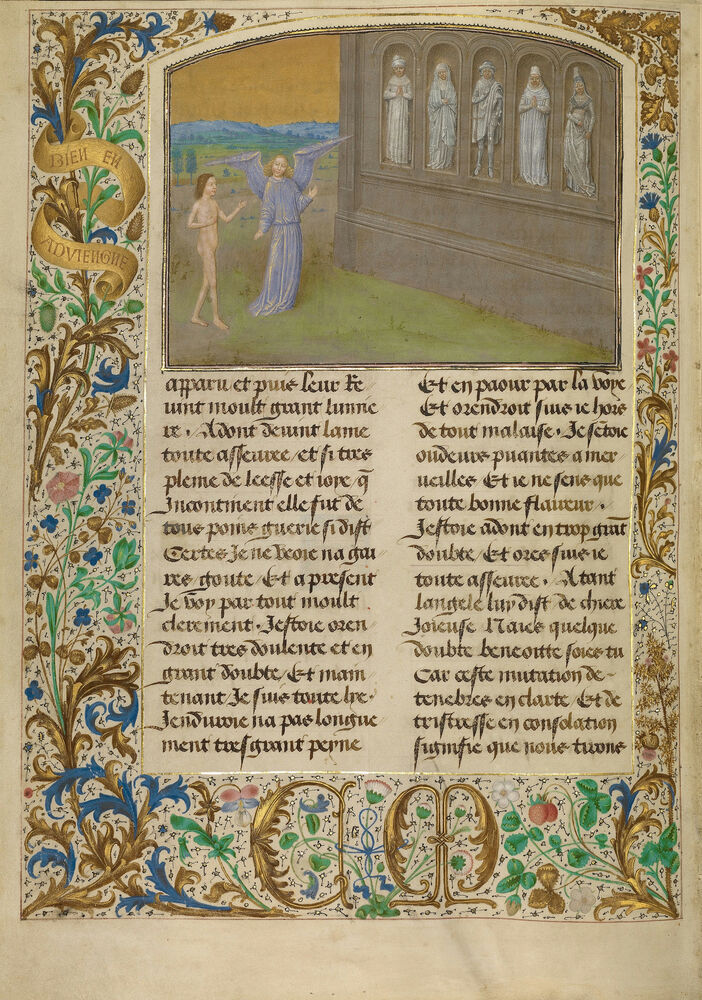 BIEN EN
ADVIENGNE
apparu et puis leur Re
uint moult grant lumie
re. Adont deuint lame
toute asseuree et si tres
pleine de leesse et ioye q̄
Jncontinent elle fut de
tous poins guerie si dist
Certes Je ne veoie na gai
res goute / Et a present
Je voy par tout moult
clerement. Jestoie oren
droit tres doulente et en
grant doubte / Et main
tenant Je suis toute lye.
Jenduroie na pas longue
ment tres grant peyne
Et en paour par la voye
Et orendroit suis ie hors
de tout malaise. Je sētoie
oudeurs puantes a mer
ueilles Et ie ne sens que
toute bonne flaireur.
Jestoie adont en trop grāt
doubte / Et ores suis ie
toute asseuree. Atant
langele luy dist de chiere
Joieuse Naies quelque
doubte benoitte soies tu
Car ceste mutation de-
tenebres en clarte / Et de
tristresse en consolation
signifie que nous tirons
C M